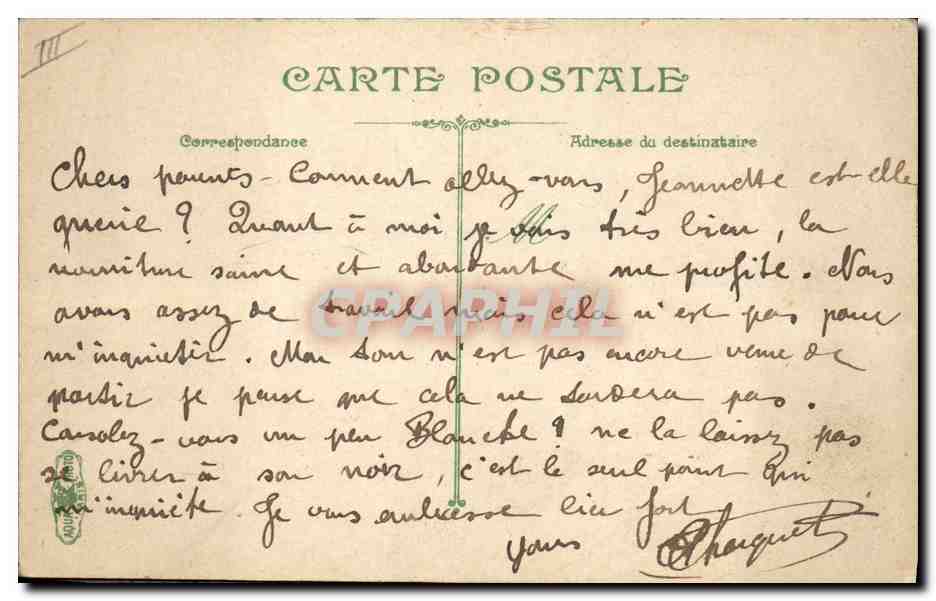 III
CARTE POSTALE
Correspondance
Adresse du destinataire
Chers parents - Comment allez-vous, Jeannette est-elle
guerie ? Quant à moi je vais très bien, la
nourriture saine et abondante me profite. Nous
avons assez de travail mais cela n'est pas pour
m'inquieter. Mon tour n'est pas encore venu de
partir je pense que cela ne tardera pas.
Consolez-vous un peu Blanche ? ne la laissez pas
se livrer à son noir, c'est le seul point qui
m'inquiète. Je vous embrasse bien fort
CPAPHIL